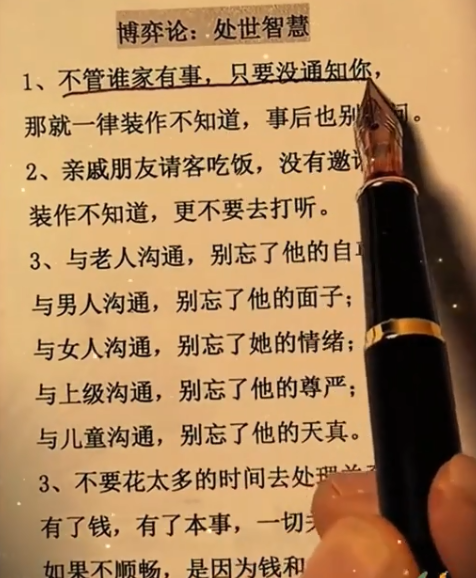 博弈论：处世智慧
1、不管谁家有事，只要没通知你，
那就一律装作不知道，事后也别 问。
2、亲戚朋友请客吃饭，没有邀
装作不知道，更不要去打听。
3、与老人沟通，别忘了他的自
与男人沟通，别忘了他的面子；
与女人沟通，别忘了她的情绪；
与上级沟通，别忘了他的尊严；
与儿童沟通，别忘了他的天真。
3、不要花太多的时间去处理
有了钱，有了本事，一切
如果不顺畅，是因为钱和